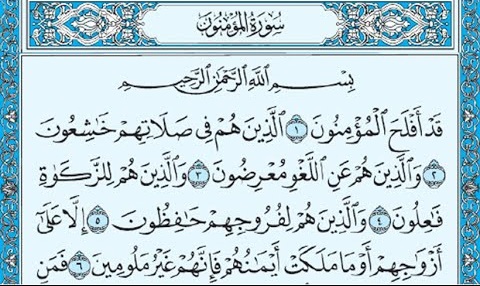 سُورَةُ المُؤۡمِنُونَ
بِسۡمِ ٱللَّهِ ٱلرَّحۡمَٰنِ ٱلرَّحِيمِ
قَدۡ أَفۡلَحَ ٱلۡمُؤۡمِنُونَ ١ ٱلَّذِينَ هُمۡ فِي صَلَاتِهِمۡ خَٰشِعُونَ
٢ وَٱلَّذِينَ هُمۡ عَنِ ٱللَّغۡوِ مُعۡرِضُونَ ٣ وَٱلَّذِينَ هُمۡ لِلزَّكَوٰةِ
فَٰعِلُونَ ٤ وَٱلَّذِينَ هُمۡ لِفُرُوجِهِمۡ حَٰفِظُونَ ٥ إِلَّا عَلَىٰٓ
أَزۡوَٰجِهِمۡ أَوۡ مَا مَلَكَتۡ أَيۡمَٰنُهُمۡ فَإِنَّهُمۡ غَيۡرُ مَلُومِينَ ٦ فَمَنِ